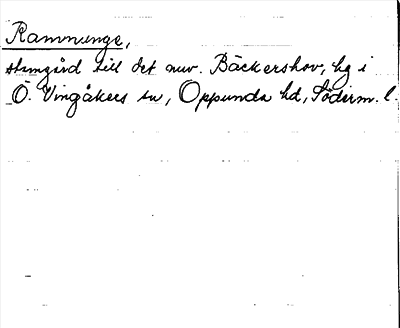 Ramnunge,
stamgård till det nuv. Bäckershov, hg i
Ö. Vingåkers sn, Oppunda hd, Söderm. l.